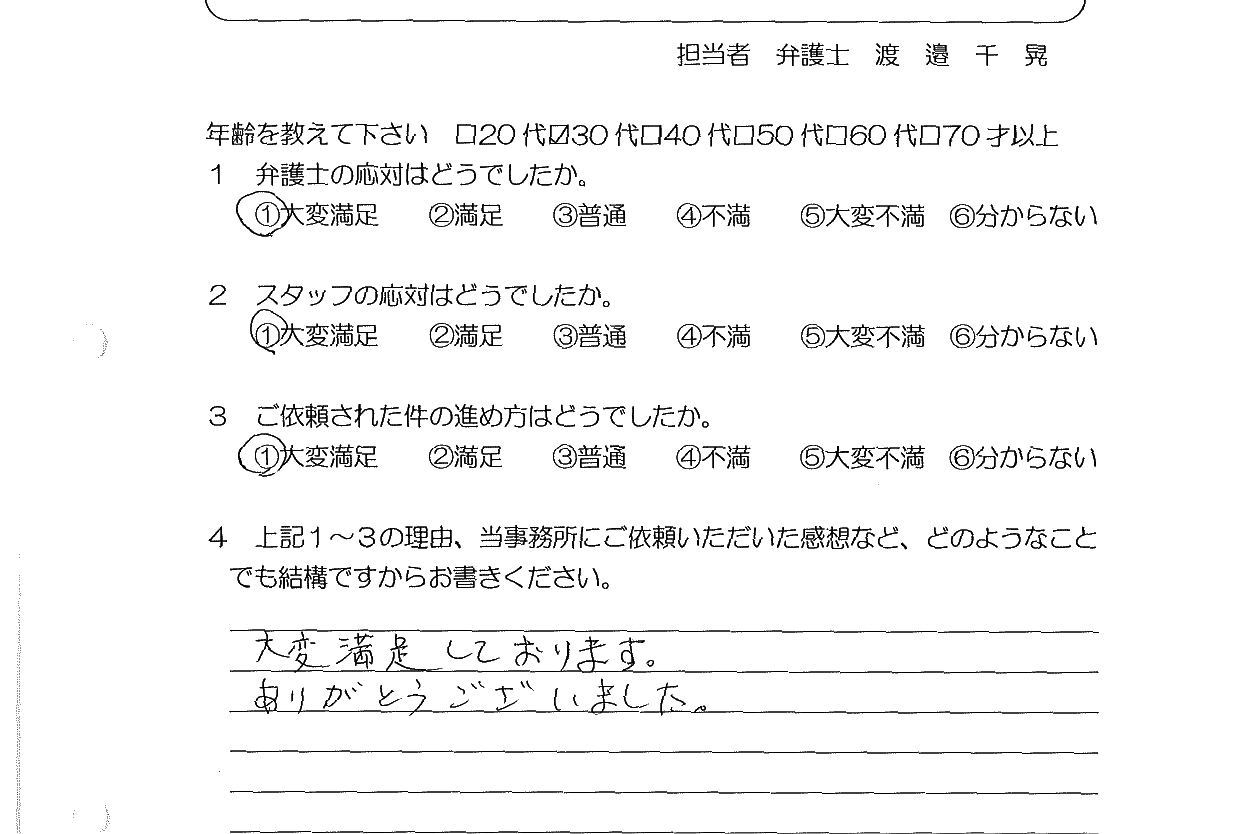 担当者　弁護士　渡　邉　千　晃
年齢を教えて下さい　□20代☑30代□40代□50代□60代□70才以上
1　弁護士の応対はどうでしたか。
①大変満足　②満足　③普通　④不満　⑤大変不満　⑥分からない
2　スタッフの応対はどうでしたか。
①大変満足　②満足　③普通　④不満　⑤大変不満　⑥分からない
3　ご依頼された件の進め方はどうでしたか。
①大変満足　②満足　③普通　④不満　⑤大変不満　⑥分からない
4　上記1～3の理由、当事務所にご依頼いただいた感想など、どのようなこと
でも結構ですからお書きください。
大変満足しております。
ありがとうございました。